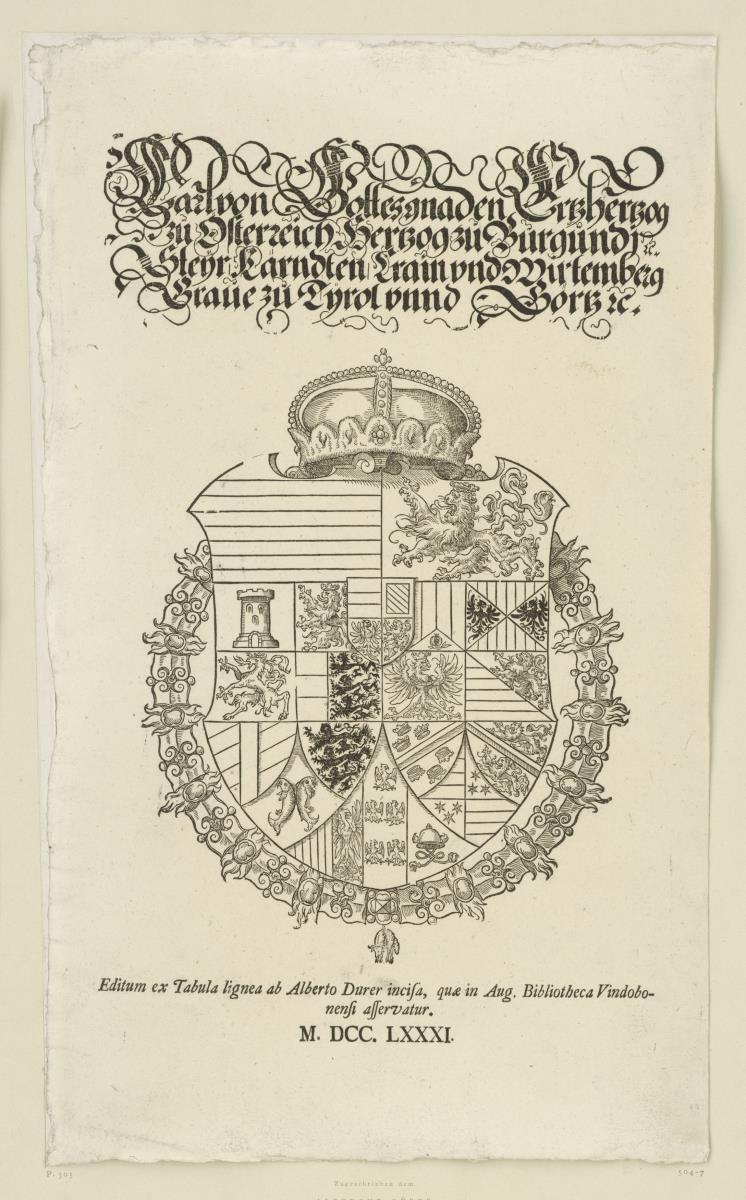 Carl von Gottes gnaden Ertzhertzog
zu Osterreich Hertzog zu Burgund ꝛc.
Steyr Karndten Crain vnd Wirtemberg
Graue zu Tyrol vnnd Gortz ꝛc.
Editum ex Tabula lignea ab Alberto Durer inciſa, quæ in Aug. Bibliotheca Vindobo-
nenſi aſſervatur.
M. DCC. LXXXI.
P. 303
504-7
Zugeschrieben dem